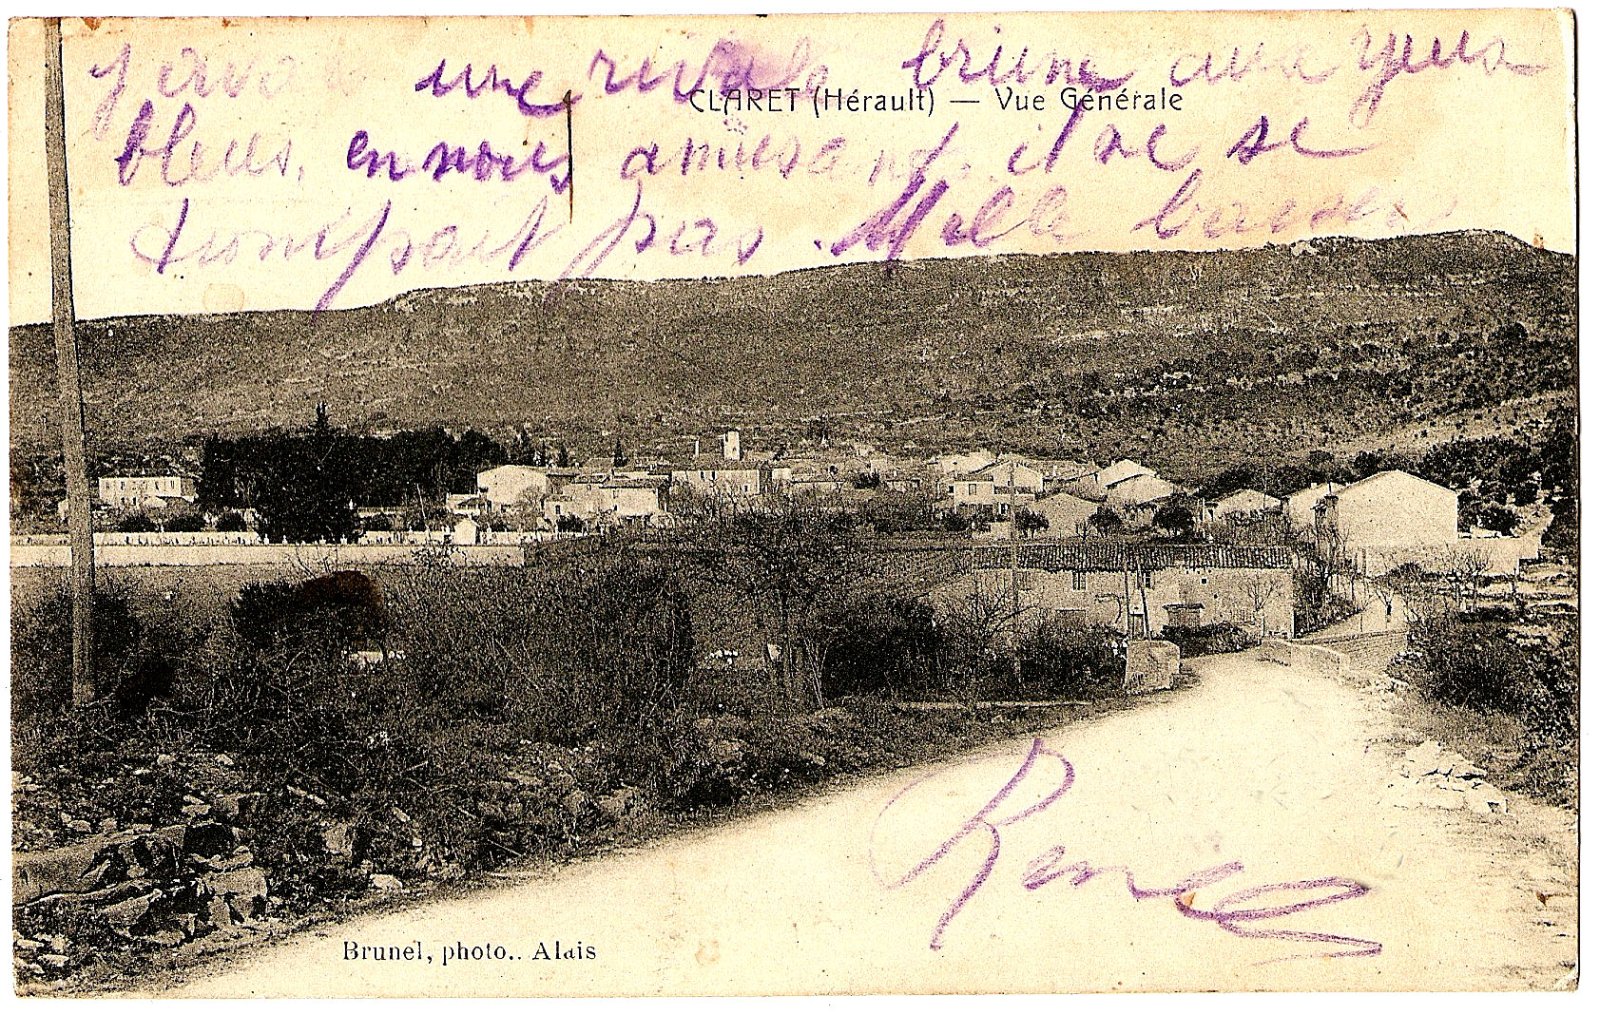 j'avais une rivale brune aux yeux
CLARET (Hérault) — Vue Générale
bleus, en nous amusant. il ne se
trompait pas. Mille baisers
Renée
Brunel, photo.. Alais